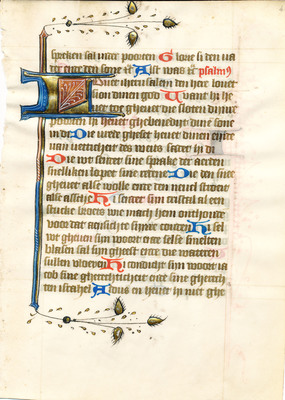 spreken sal mer poorten Glorie si den va
ter ende den sone Als was psalm
iherusalem den here louet
sion dinen god Want hi he
uet die sloten dinre
poorten hi heuet ghebenedijt dine sone
in di Die vrede gheset heuet dinen einde
van vetticheit des weits sadet hi di
Die wt sinre sprake der aerden
snelliken sine redene Die den snee
gheuet als wolle ende den neuel stroeit
als asschen Hi sent sijn cristal als een
stucke broets wie mach hem onthoude
voer dat aensichte sijnre couden Hi sel
wt gheuen sijn woert ende selse smelten
blasen sal sijn gheest ende die wateren
sullen vloeyen Hi condicht sijn woert ia
cob sine gherechticheit ende sine gherich
ten israhel Aldus en heuet hi niet ghe